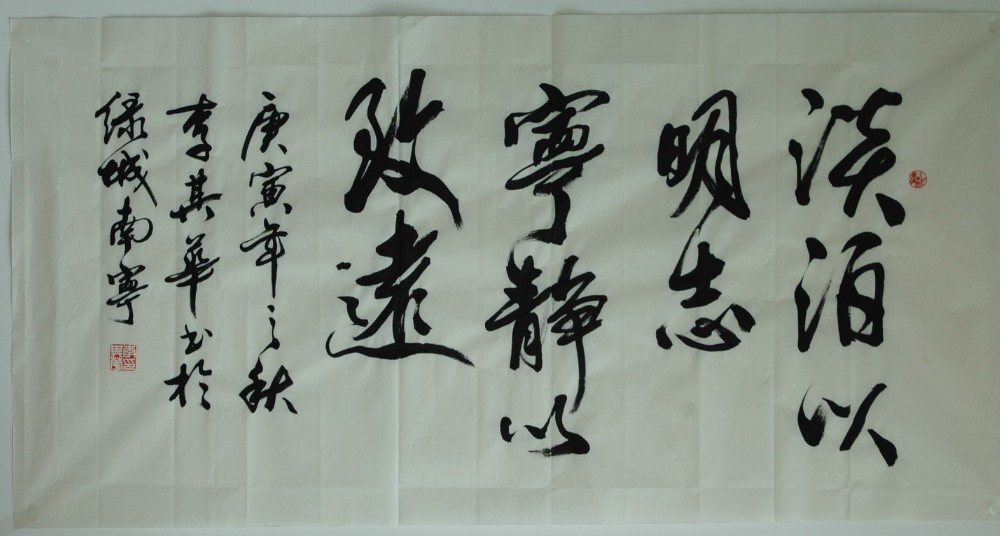 淡泊以
明志
寧靜以
致遠
庚寅年之秋
李其華书於
绿城南寧